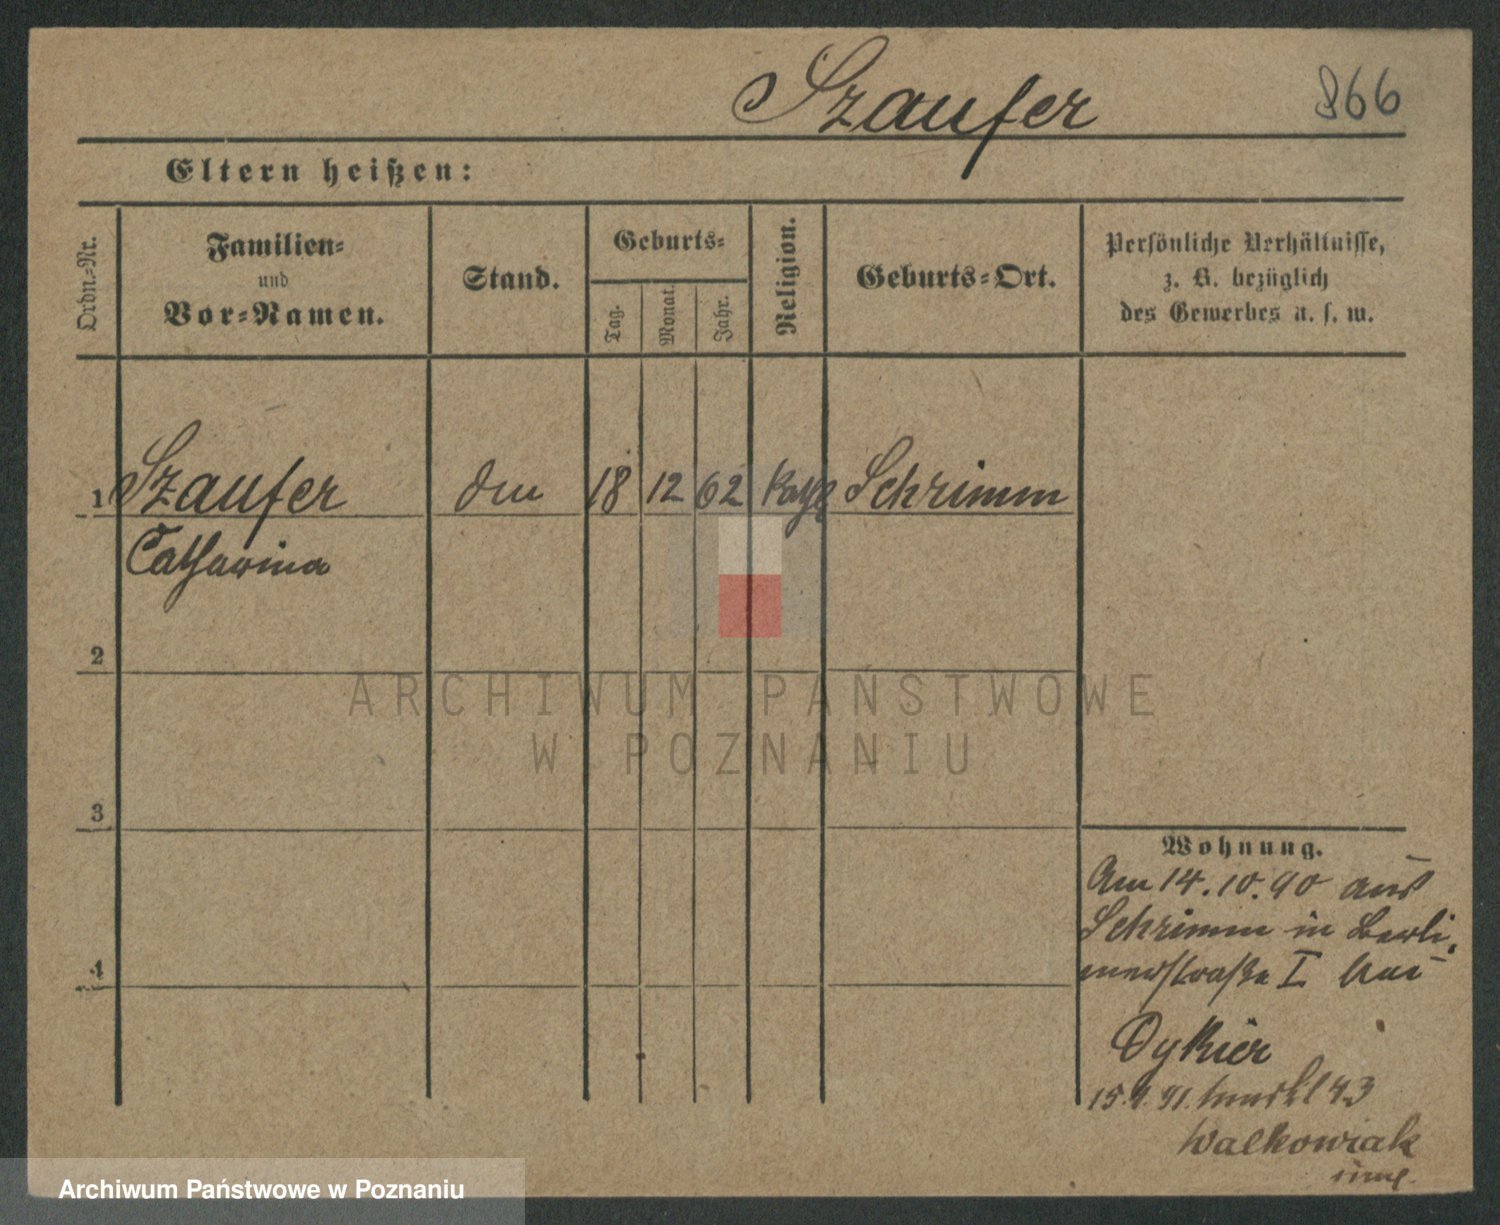 Szaufer 866
Eltern heißen:
Ordn.-Nr.
Familien-
und
Vor-Namen.
Stand.
Geburts-
Tag.
Monat.
Jahr.
Religion.
Geburts-Ort.
Persönliche Verhältnisse,
z. B. bezüglich
des Gewerbes u. s. w.
1 Szaufer 18 12 62 kath Schrimm
Catharina
2
ARCHIWUM PAŃSTWOWE
W POZNANIU
3
Wohnung.
Am 14.10.90 aus
Schrimm in Berli-
nerstraße I bei
Dykier
4
15.4.91. 43
Walkowiak
Archiwum Państwowe w Poznaniu